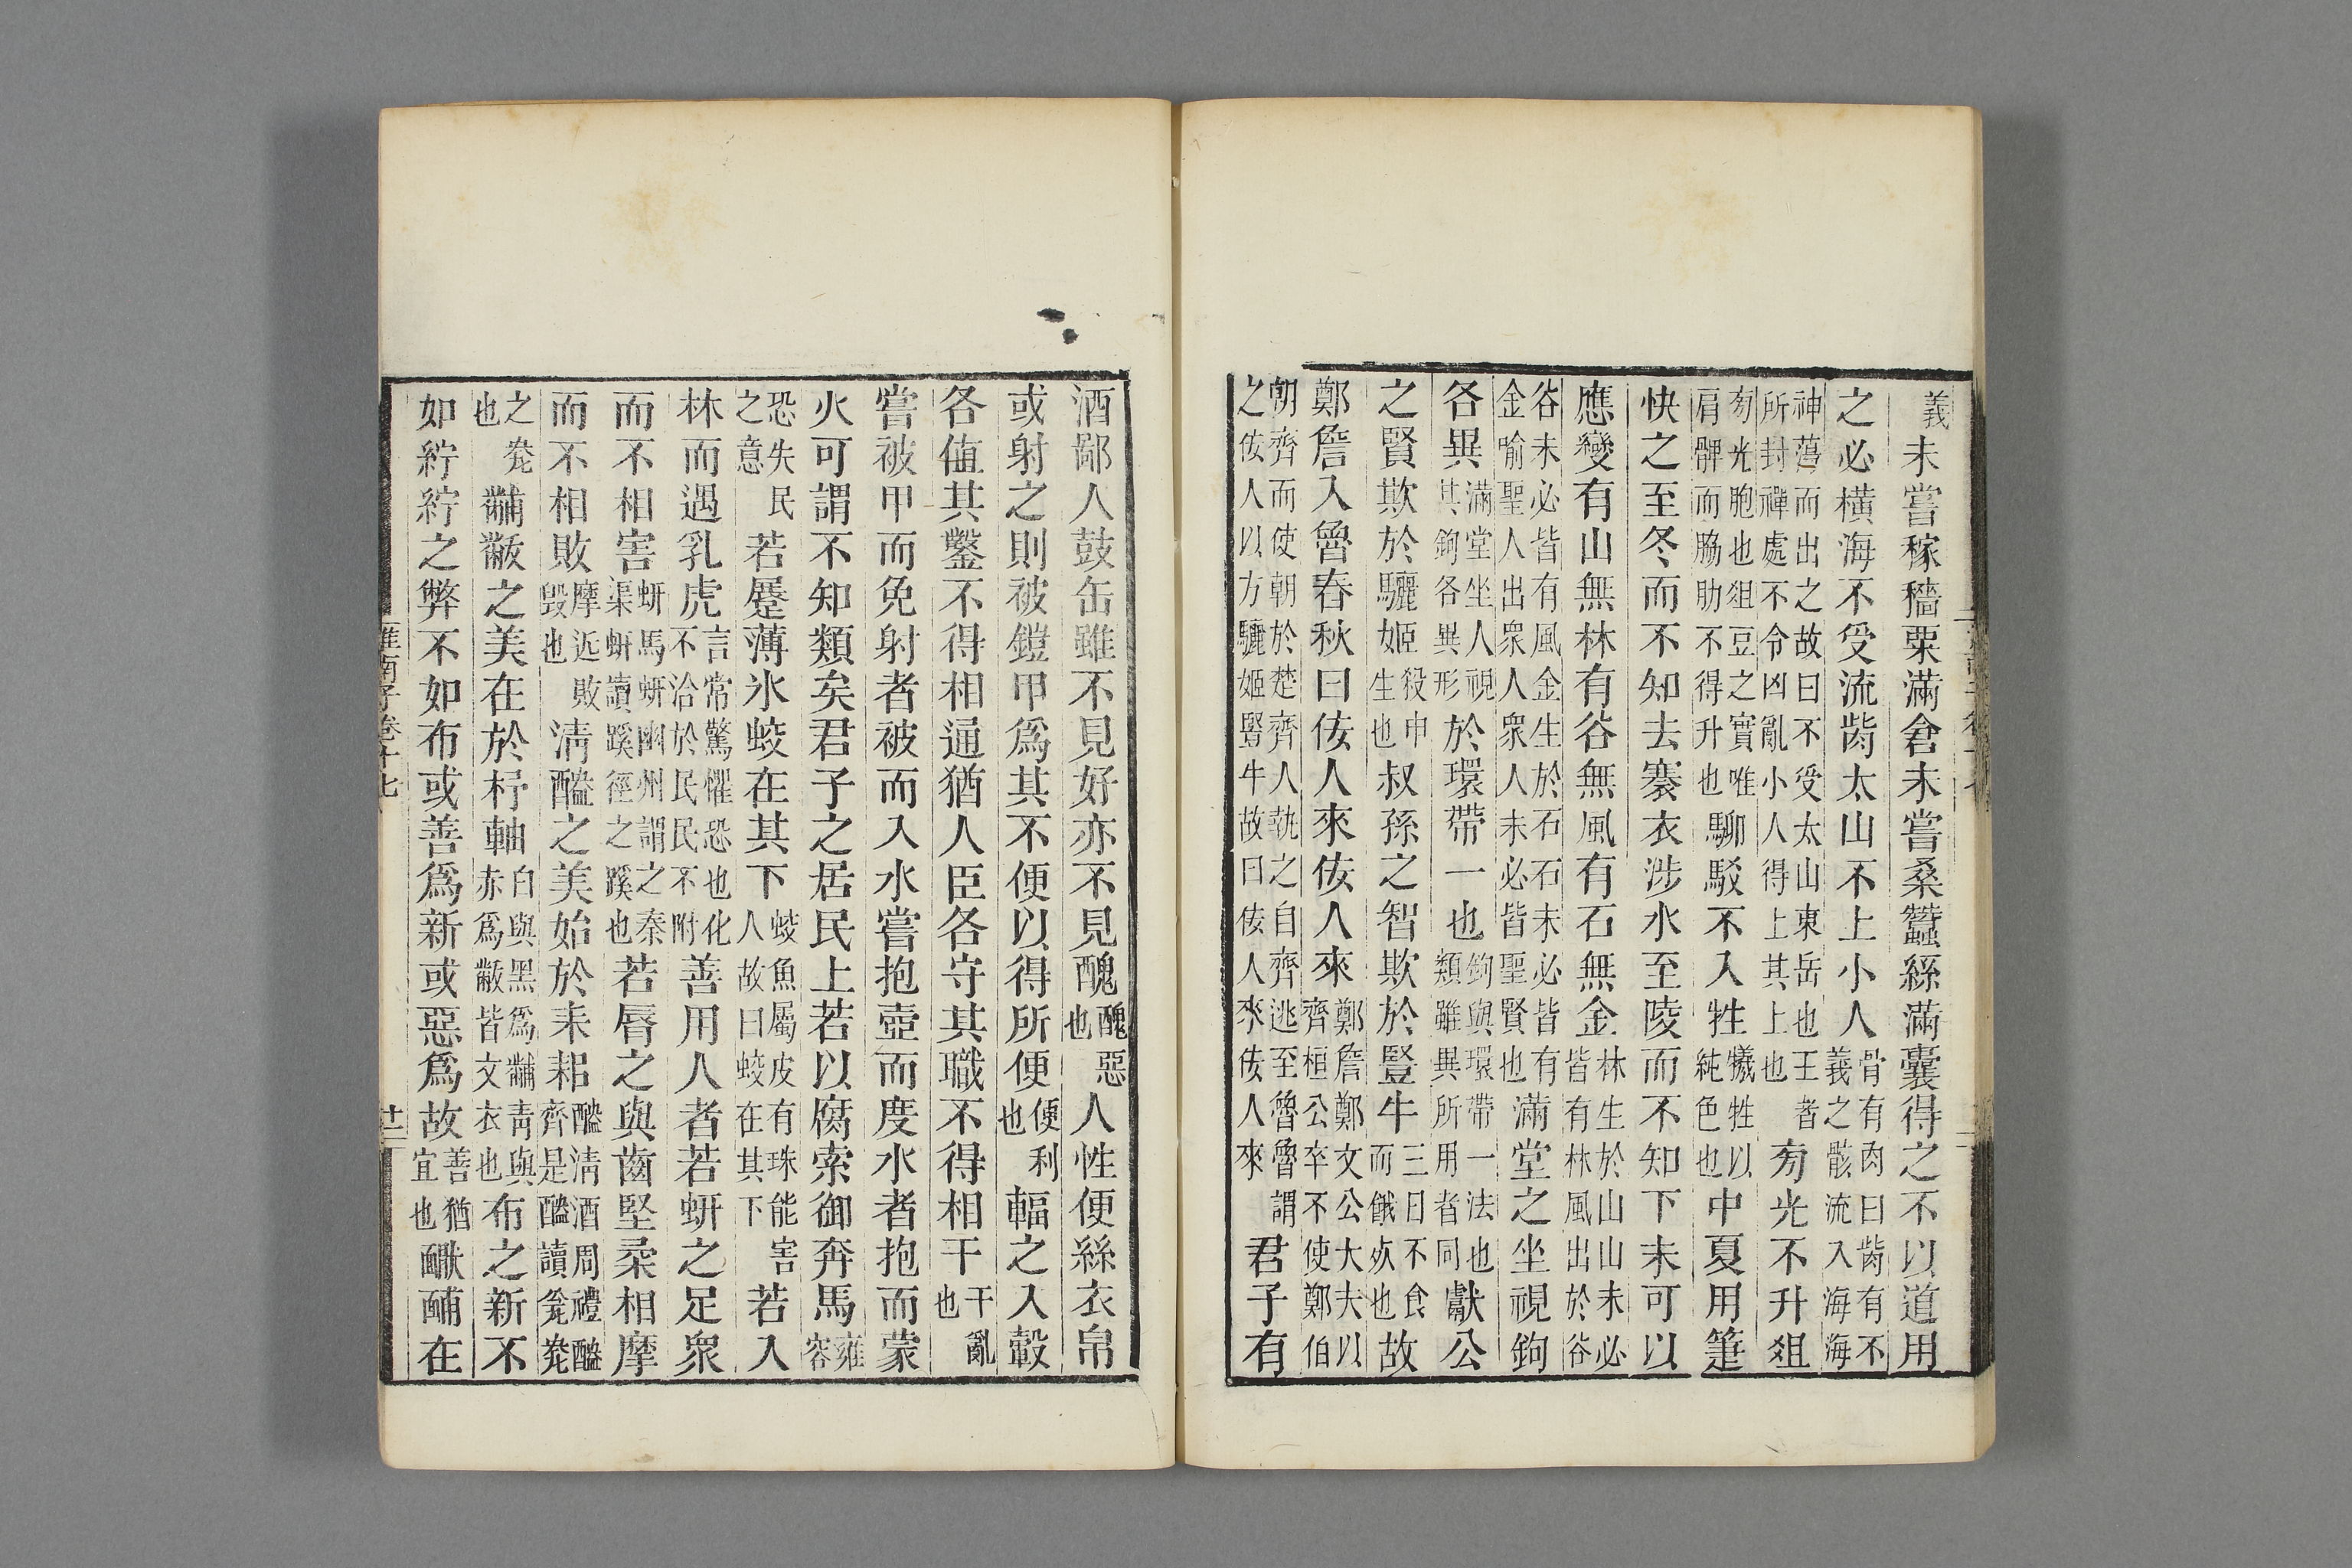 義未嘗稼穡粟滿倉未嘗桑蠶絲滿囊得之不以道用
之必橫海不受流胔太山不上小人骨有肉曰胔有不義之骸流入海海
神蕩而出之故曰不受太山東岳也王者所封禪處不令凶亂小人得上其上也㫄光不升俎
㫄光胞也俎豆之實唯肩髀而脇肋不得升也駵駁不入牲犧牲以純色也中夏用箑
快之至冬而不知去褰衣涉水至陵而不知下未可以
應變有山無林有谷無風有石無金林生於山山未必皆有林風出於谷
谷未必皆有風金生於石石未必皆有金喻聖人出衆人衆人未必皆聖賢也滿堂之坐視鉤
各異滿堂坐人視其鉤各異形於環帶一也鉤與環帶一法也類雖異所用者同獻公
之賢欺於驪姬殺申生也叔孫之智欺於豎牛三日不食而餓死也故
鄭詹入魯春秋曰佞人來佞人來鄭詹鄭文公大夫以齊桓公卒不使鄭伯
朝齊而使朝於楚齊人執之自齊逃至魯魯謂之佞人以方驪姬豎牛故曰佞人來佞人來君子有
酒鄙人鼓缶雖不見好亦不見醜醜惡也人性便絲衣帛
或射之則被鎧甲爲其不便以得所便便利也輻之入轂
各値其鑿不得相通猶人臣各守其職不得相干干亂也
嘗被甲而免射者被而入水嘗抱壺而度水者抱而蒙
火可謂不知類矣君子之居民上若以腐索御奔馬雍容
恐失民之意若蹷薄氷蛟在其下蛟魚屬皮有珠能害人故曰蛟在其下若入
林而遇乳虎言常驚懼恐也化不洽於民民不附善用人者若蚈之足衆
而不相害蚈馬蚈幽州謂之秦渠蚈讀蹊徑之蹊也若脣之與齒堅柔相摩
而不相敗摩近敗毀也淸醠之美始於耒耜醠淸酒周禮醠齊是醠讀瓮瓮
之瓮也黼黻之美在於杼軸白與黑爲黼靑與赤爲黻皆文衣也布之新不
如紵紵之弊不如布或善爲新或惡爲故善猶宜也䵝䩉在
淮南子卷十七
廿二